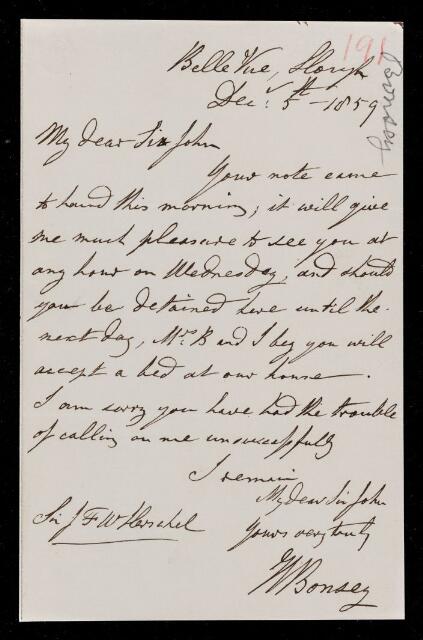 191
Bonsey
Belle Vue, Slough
Decr. 5th - 1859
My dear Sir John
Your note came
to hand this morning; it will give
me much pleasure to see you at
any hour on Wednesday, and should
you be detained here until the
next day, Mrs. B and I beg you will
accept a bed at our house.
I am sorry you have had the trouble
of calling on me unsuccessfully
I remain
My dear Sir John
Yours very truly
Sir J F W Herschel
W Bonsey